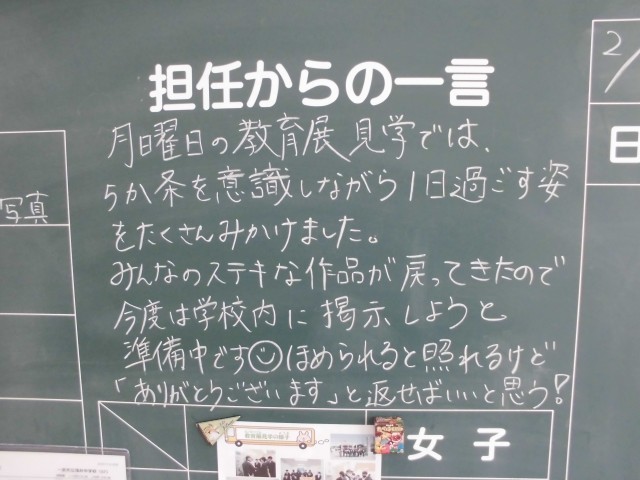 担任からの一言
月曜日の教育展見学では、
5か条を意識しながら1日過ごす姿
をたくさんみかけました。
みんなのステキな作品が戻ってきたので
今度は学校内に掲示しようと
準備中です☺ほめられると照れるけど
「ありがとうございます」と返せばいいと思う!
写真
2/
日
女子